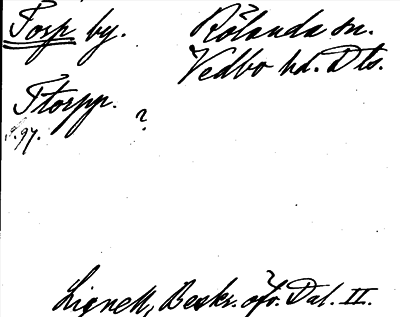 Torp by. Rölanda sn.
Vedbo hd. Dls.
Ttorpp. ?
S. 97.
Lignell, Beskr. öfv. Dal. II.